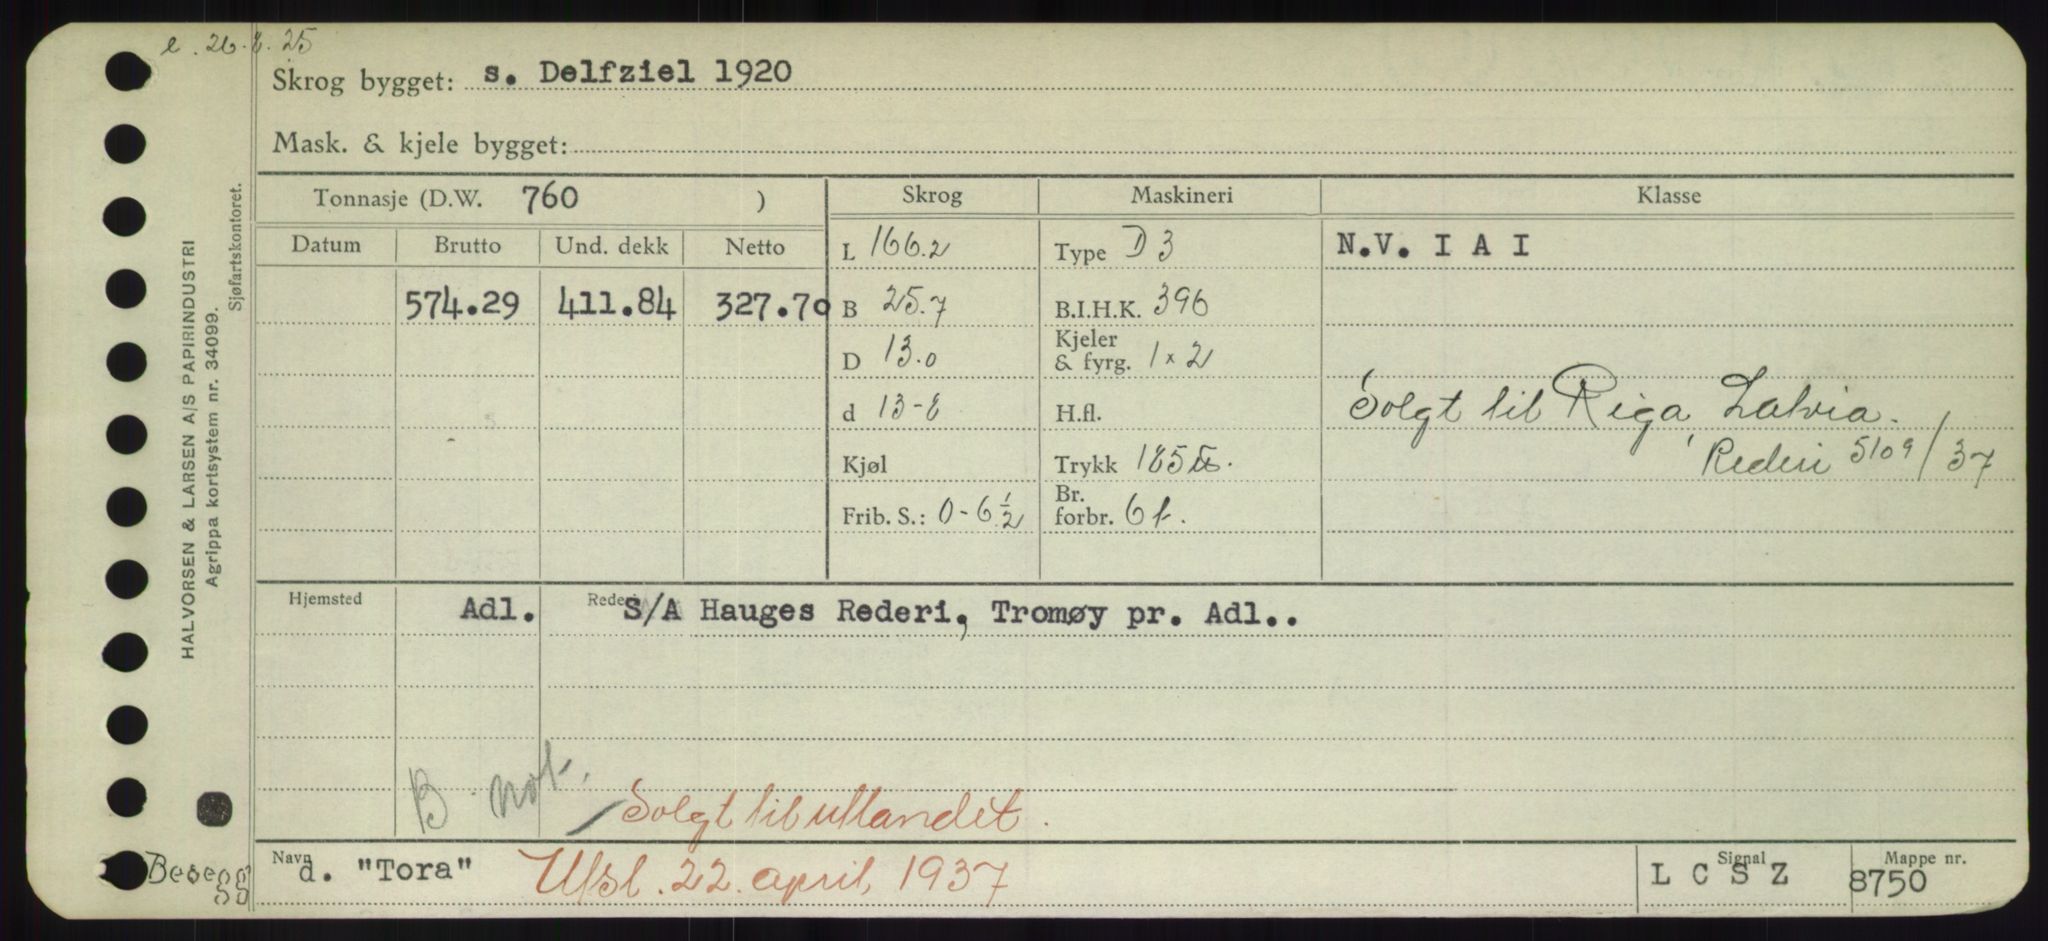 e. 26.8.25
Skrog bygget: s. Delfziel 1920
Mask. & kjele bygget:
Tonnasje (D.W. 760 )
Skrog
Maskineri
Klasse
Datum Brutto Und. dekk Netto
574.29 411.84 327.70
L 166.2
B 25.7
D 13.0
d 13-8
Kjøl
Frib. S.: 0-6½
Type D 3
B.I.H.K. 396
Kjeler
& fyrg. 1 x 2
H.fl.
Trykk 185 lbs.
Br.
forbr. 6 t.
N.V. I A I
Solgt til Riga, Latvia.
Rederi 5109/37
Hjemsted Adl.
Rederi S/A Hauges Rederi, Tromøy pr. Adl..
B not.
Solgt til utlandet.
Navn d. "Tora" Utsl. 22. april, 1937
Signal L C S Z
Mappe nr. 8750
HALVORSEN & LARSEN A/S PAPIRINDUSTRI
Agrippa kortsystem nr. 34099.
Sjøfartskontoret.
Besegg